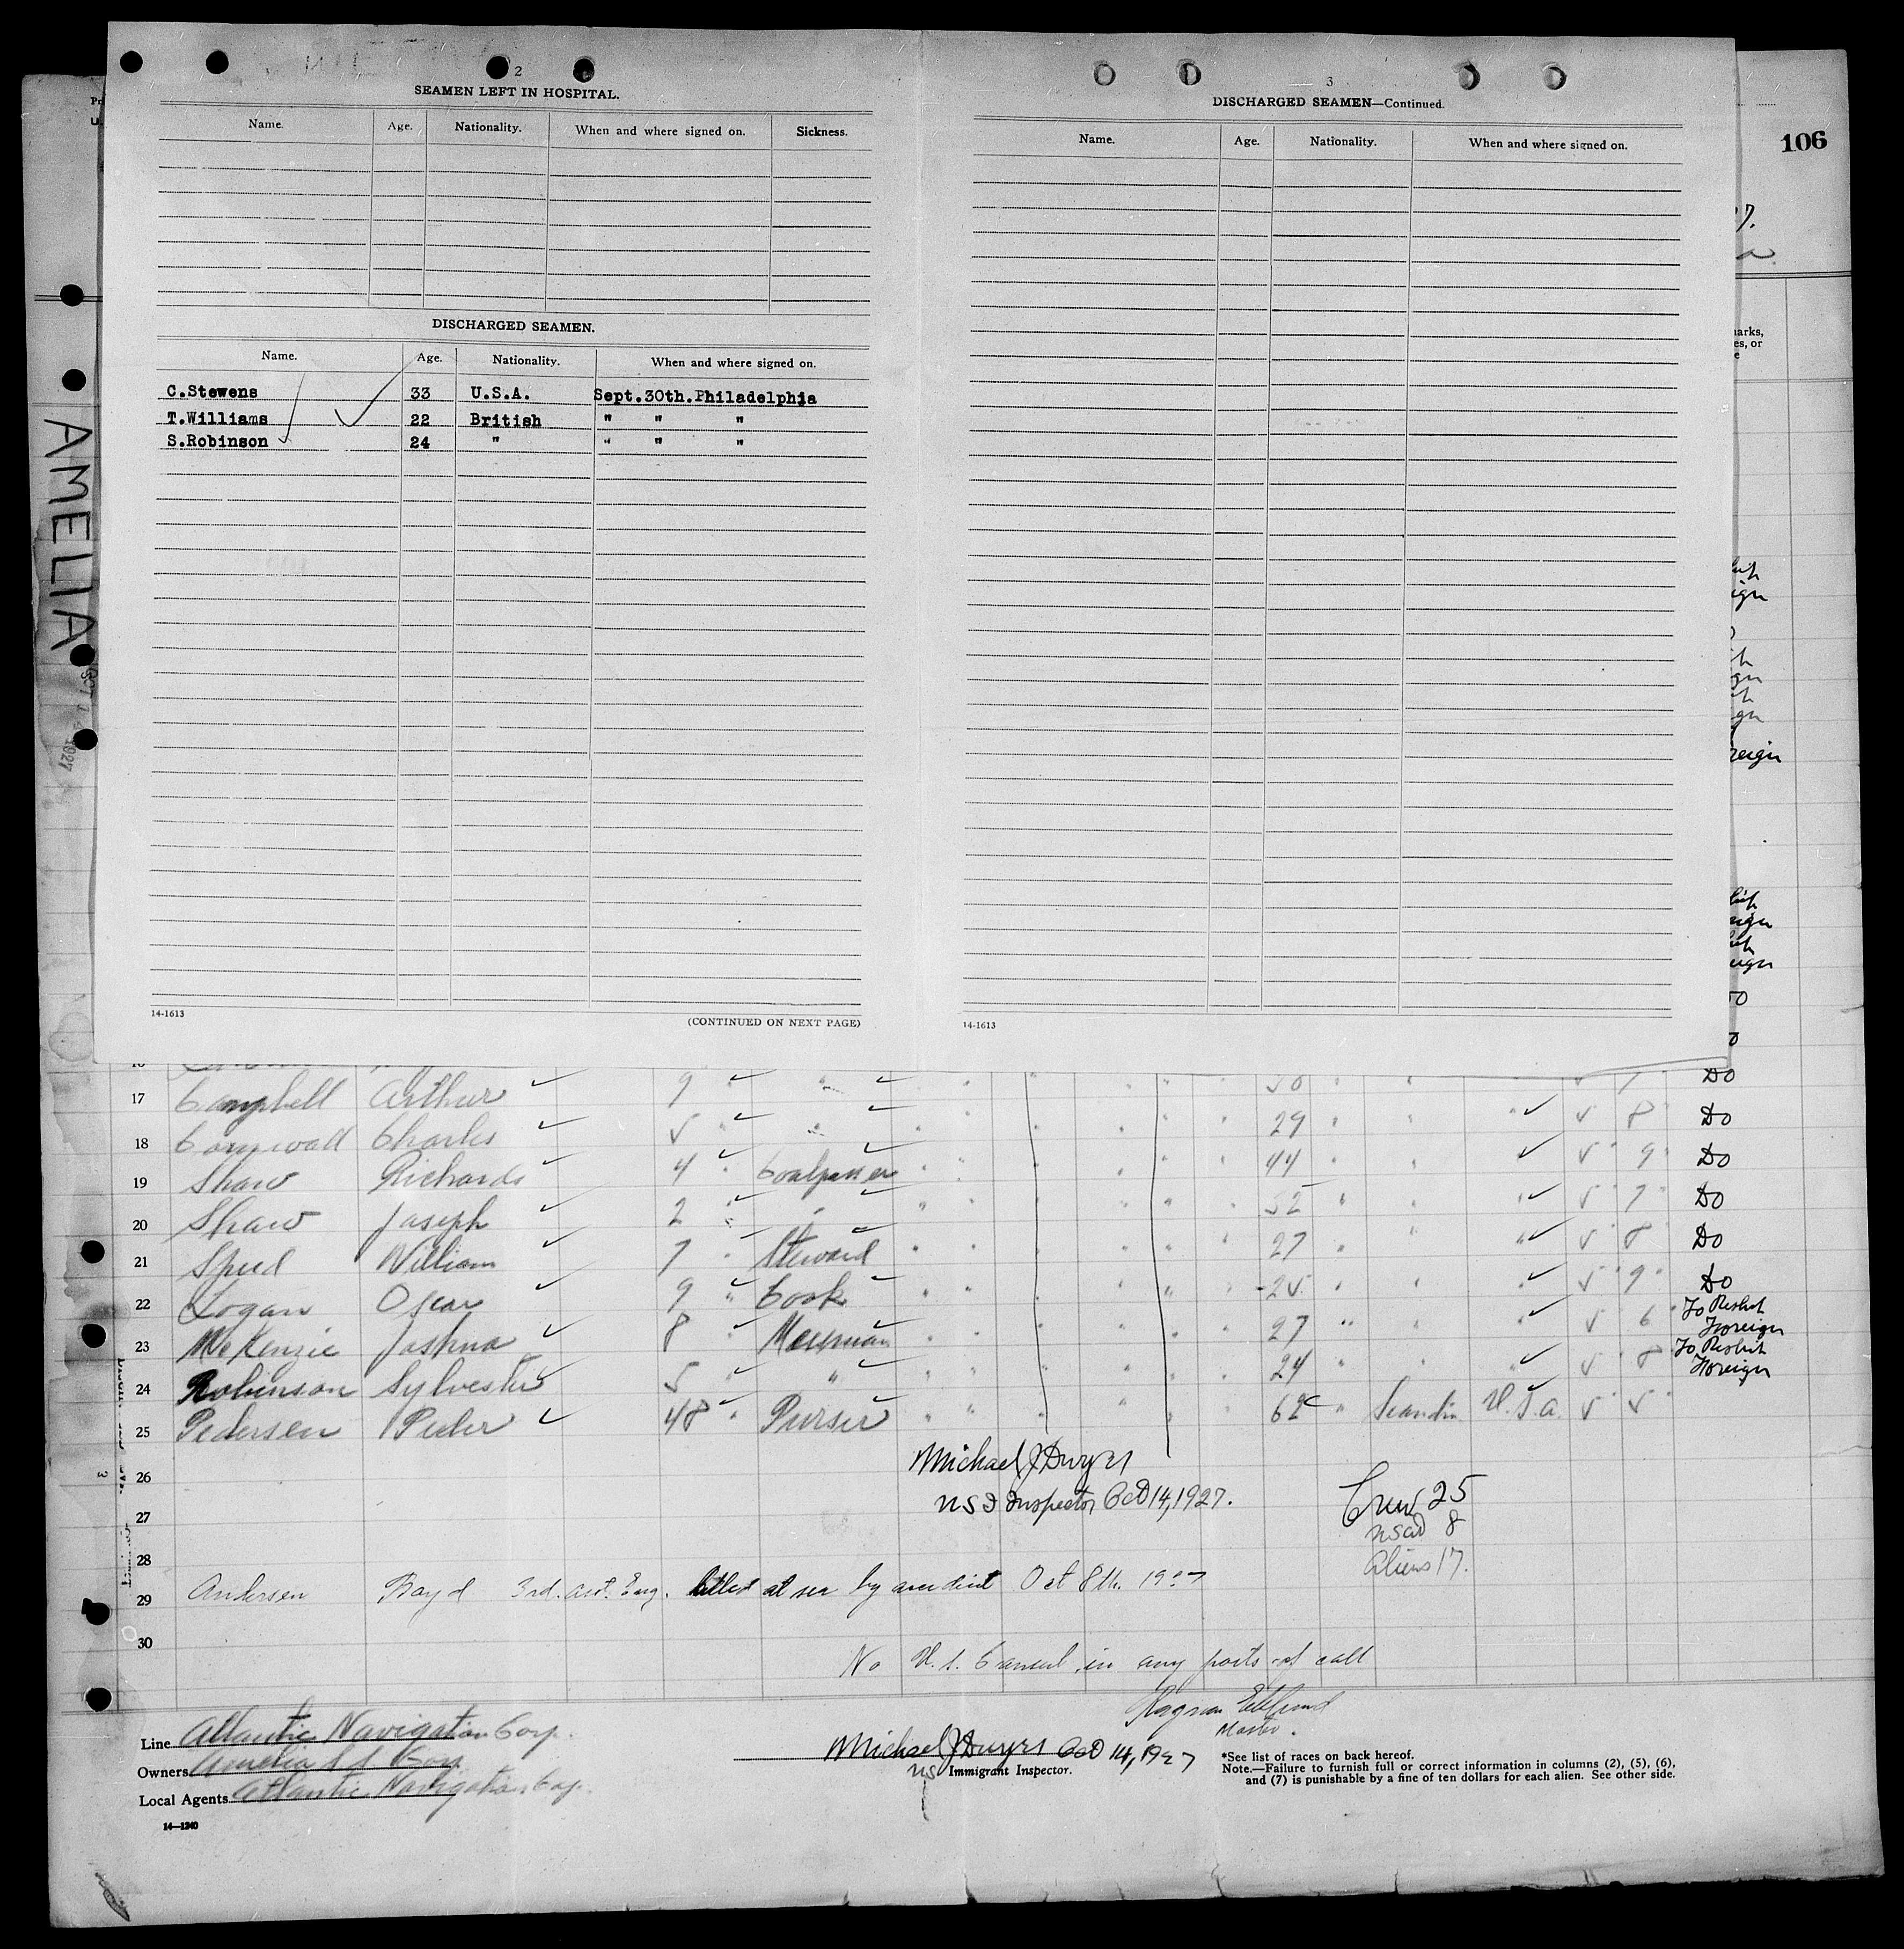 2
SEAMEN LEFT IN HOSPITAL.
Name. Age. Nationality. When and where signed on. Sickness.
DISCHARGED SEAMEN.
Name. Age. Nationality. When and where signed on.
C.Stewens 33 U.S.A. Sept.30th.Philadelphia
T.Williams 22 British " " "
S.Robinson 24 " " " "
14-1613
(CONTINUED ON NEXT PAGE)
3
DISCHARGED SEAMEN—Continued.
Name. Age. Nationality. When and where signed on.
14-1613
106
AMELIA
1927
17 Campbell Arthur 9 " " DO
18 Cornwall Charles 5 " " 29 " " " 5 8 DO
19 Shaw Richards 4 " Coalpasser 44 " " 5 9 DO
20 Shaw Joseph 2 " " 52 " " " 5 7 DO
21 Speed William 7 " Steward 27 " " " 5 8 DO
22 Logan Oscar 9 " Cook 25 " " " 5 9 DO
23 McKenzie Joshua 8 " Messman 27 " " " 5 6 To Reship Foreign
24 Robinson Sylvester 5 " " 24 " " " 5 8 To Reship Foreign
25 Pedersen Peder 48 " Purser 62 " Scandin U.S.A. 5 5
26 Michael J Dwyer
27 US I Inspector Oct 14, 1927.
Crew 25
8
Aliens 17.
28
29 Andersen Boyd 3rd. Asst. Eng. killed at sea by accident Oct 8th. 1927
30
No U.S. Consul in any ports of call
Ragnar
Master.
Line Atlantic Navigation Corp.
Owners Amelia SS Corp
Local Agents Atlantic Navigation Corp.
14—1240
Michael J Dwyer Oct 14, 1927
US Immigrant Inspector.
*See list of races on back hereof.
Note.—Failure to furnish full or correct information in columns (2), (5), (6),
and (7) is punishable by a fine of ten dollars for each alien. See other side.